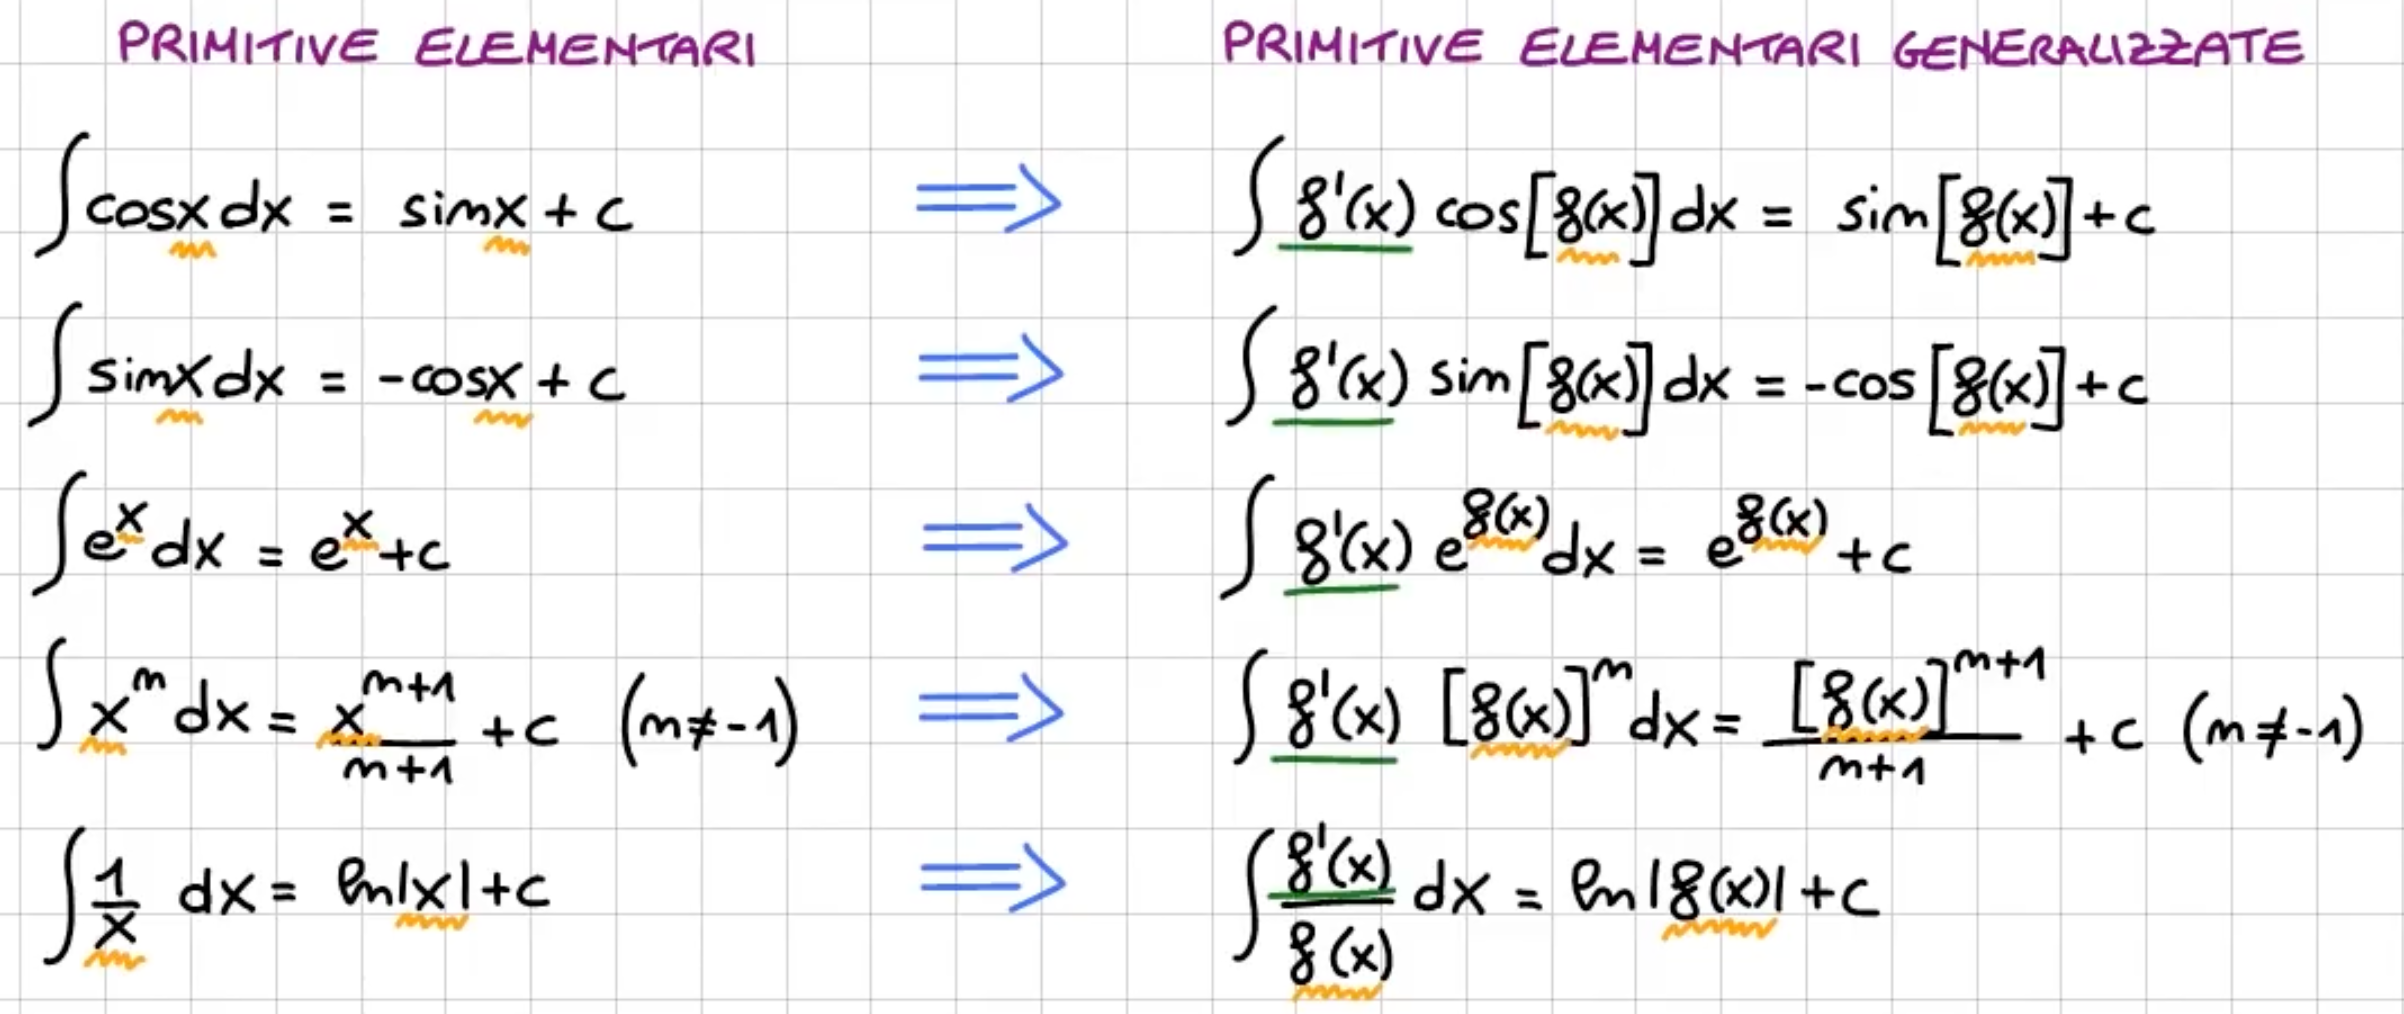 PRIMITIVE ELEMENTARI PRIMITIVE ELEMENTARI GENERALIZZATE
∫cosx dx = sinx + c ⟹ ∫ f'(x) cos[f(x)] dx = sin[f(x)] + c
∫sinx dx = -cosx + c ⟹ ∫ f'(x) sin[f(x)] dx = -cos[f(x)] + c
∫e^x dx = e^x + c ⟹ ∫ f'(x) e^f(x) dx = e^f(x) + c
∫ x^n dx = x^(n+1)/(n+1) + c (n≠-1) ⟹ ∫ f'(x) [f(x)]^n dx = [f(x)]^(n+1)/(n+1) + c (n≠-1)
∫ 1/x dx = ln|x| + c ⟹ ∫ f'(x)/f(x) dx = ln|f(x)| + c